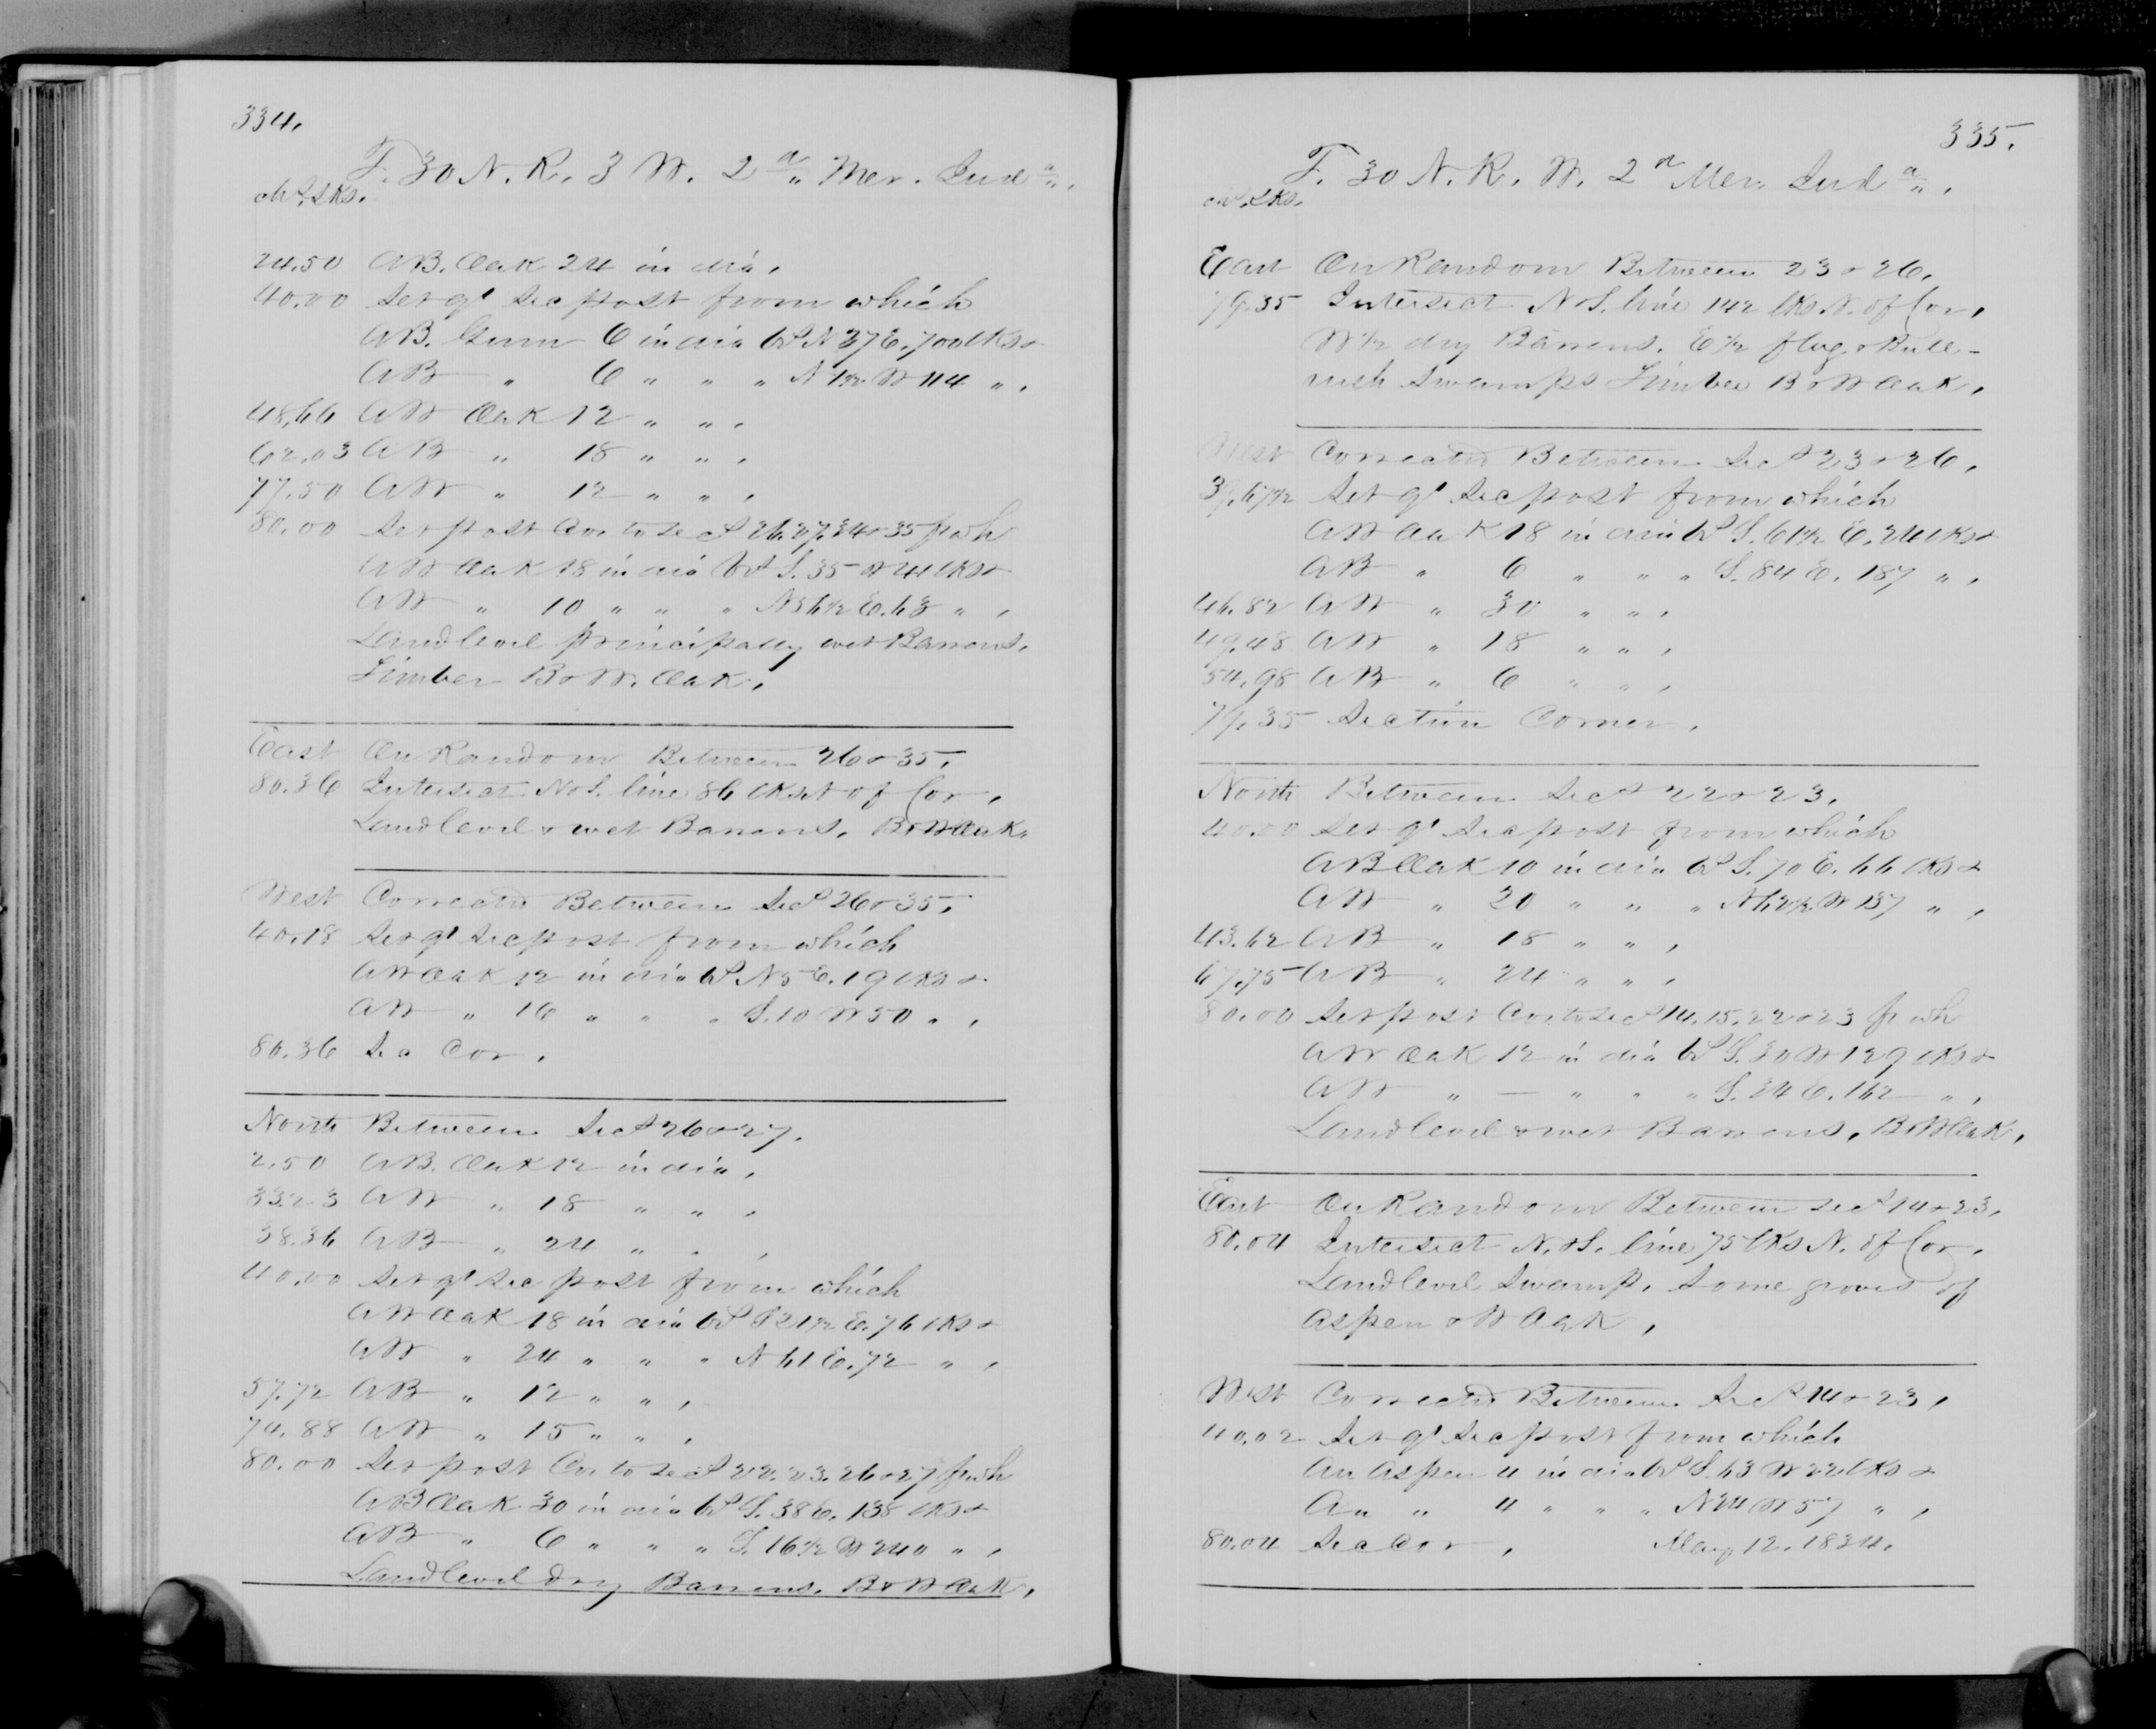 334.
T. 30 N. R. 3 W. 2d Mer. Inda.
chs. Lks.
24.50 A B. Oak 24 in dia,
40.00 Set qr Sec post from which
A B. Gum 6 in dia bs N 37 E. 700 lks &
A B " 6 " " " N 1½ W 114 " ,
48,66 A W Oak 12 " " ,
62.03 A B " 18 " " ,
77.50 A W " 12 " " ,
80.00 Set post Cor. to Secs 26.27.34 & 35 fr wh
A W Oak 18 in dia bs S. 35 W 41 lks &
A W " 10 " " " N 56½ E. 63 " ,
Land level principally wet Barrens,
Timber B & W. Oak,
East On Random Between 26 & 35,
80.36 Intersect N & S. line 86 lks N of Cor,
Land level & wet Barrens, B & W Oak,
West Corrected Between Secs 26 & 35,
40.18 Set qr Sec post from which
A W Oak 12 in dia bs N 5 E. 19 lks &
A W " 16 " " " S. 10 W 50 " ,
80.36 Sec Cor,
North Between Secs 26 & 27,
2.50 A B. Oak 12 in dia,
33.23 A W " 18 " " ,
38.36 A B " 24 " " ,
40.00 Set qr Sec post from which
A W Oak 18 in dia bs S 21½ E. 76 lks &
A W " 24 " " " N 61 E. 72 " ,
57.72 A B " 12 " " ,
74.88 A W " 15 " " ,
80.00 Set post Cor. to Secs 22.23.26 & 27 fr wh
A B Oak 30 in dia bs S. 38 E. 138 lks &
A B " 6 " " " S. 16½ W 240 " ,
Land level dry Barrens. B & W Oak,
335.
T. 30 N. R. W. 2d Mer. Inda.
chs. Lks.
East On Random Between 23 & 26,
79.35 Intersect N & S. line 142 lks N. of Cor,
W ½ dry Barrens. E ½ flag & Bull-
rush Swamps Timber B & W Oak,
West Corrected Between Secs 23 & 26,
39.67½ Set qr Sec post from which
A W Oak 18 in dia bs S. 61½ E. 241 lks &
A B " 6 " " " S. 84 E. 187 " ,
46.82 A W " 30 " " ,
49.48 A W " 18 " " ,
54.98 A B " 6 " " ,
79.35 Section Corner,
North Between Secs 22 & 23,
40.00 Set qr Sec post from which
A B Oak 10 in dia bs S. 70 E. 66 lks &
A W " 20 " " " N 62½ W 137 " ,
43.62 A B " 18 " " ,
67.75 A B " 24 " " ,
80.00 Set post Cor. to Secs 14.15.22 & 23 fr wh
A W Oak 12 in dia bs S. 30 W 129 lks &
A W " — " " " S. 24 E. 162 " ,
Land level & wet Barrens, B & W Oak,
East On Random Between Secs 14 & 23,
80.04 Intersect N. & S. line 75 lks N. of Cor,
Land level Swamp, Some groves of
Aspen & W Oak,
West Corrected Between Secs 14 & 23,
40.02 Set qr Sec post from which
An Aspen 4 in dia bs S. 63 W 22 lks &
An " 4 " " " N 24 W 57 " ,
80.04 Sec Cor, May 12. 1834.